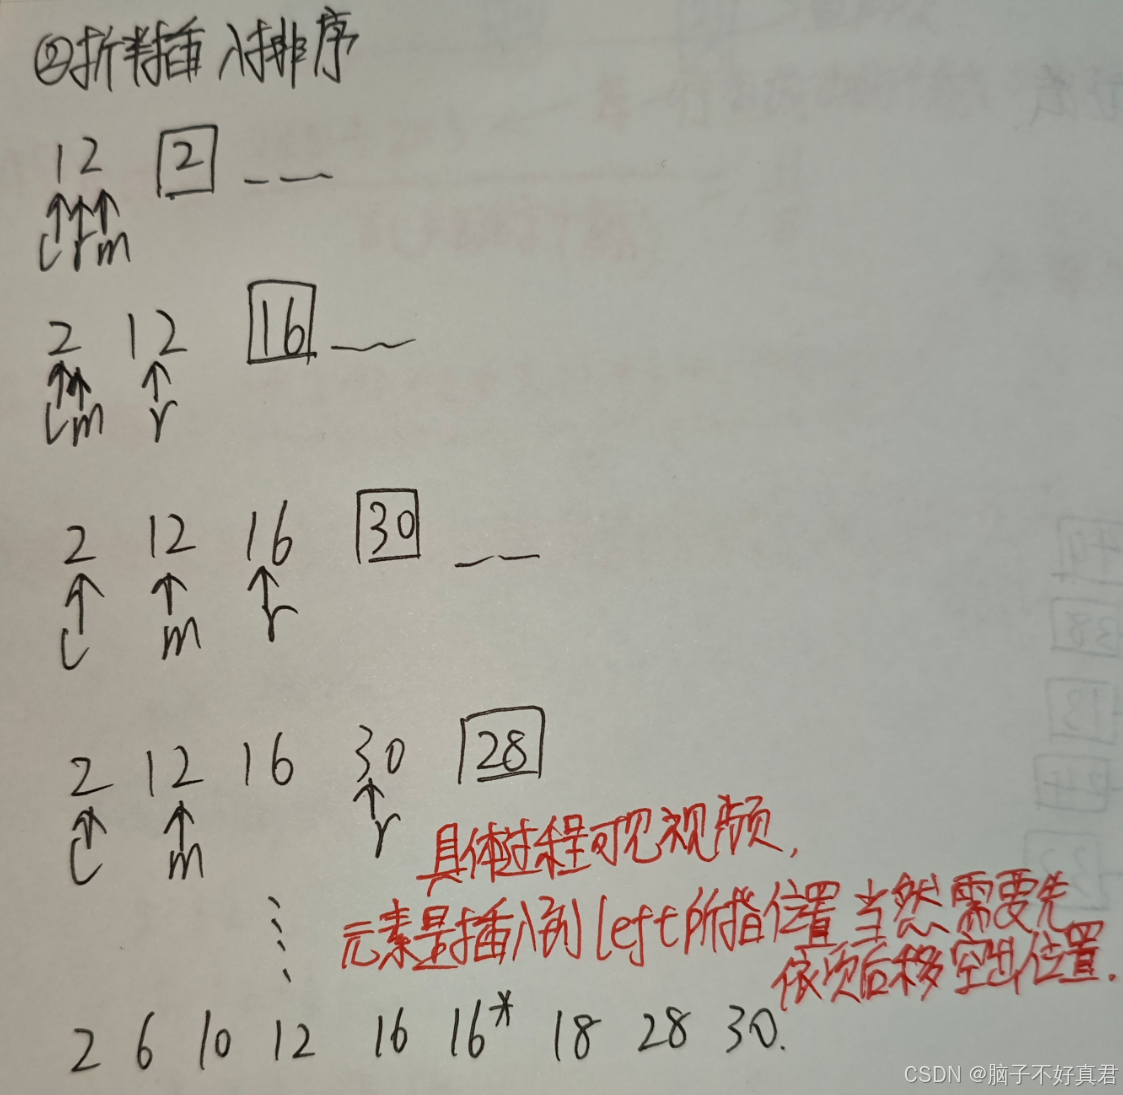 ②折半插入排序
12 2
l r m
2 12 16
l m r
2 12 16 30
l m r
2 12 16 30 28
l m r
具体过程可见视频,
元素是插入到left所指位置 当然需要先
依次后移空出位置.
2 6 10 12 16 16* 18 28 30.
CSDN @脑子不好真君